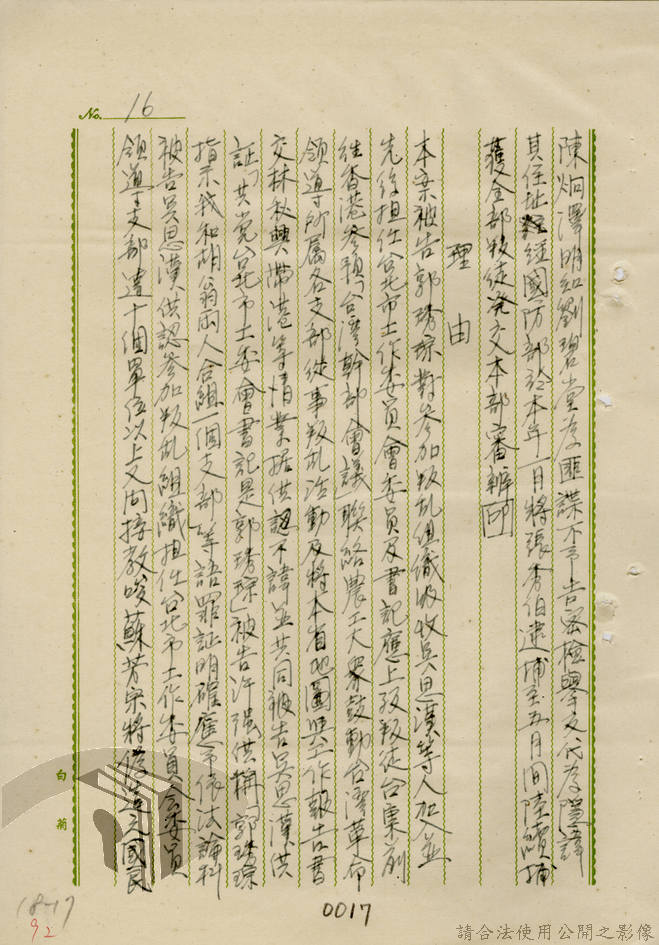 No. 16
陳炯澤明知劉碧堂為匪諜不予告密檢舉文代為隱諱
其住址經國防部於本年一月將張秀伯逮捕至五月間陸續捕
獲全部叛徒發交本部審辦印
理由
本案被告郭琇琮對參加叛乱組織吸收吳思漢等人加入並
先後担任台北市工作委員會委員及書記應上級叛徒台東前
往香港參預「台灣幹部會議」聯絡農工大眾鼓動台灣革命
領導所屬各支部從事叛乱活動及將本省地圖與工作報告書
交林秋興帶港等情業據供認不諱並共同被告吳思漢供
証「共党台北市工委會書記是郭琇琮」被告许强供稱「郭琇琮
指示我和胡翁兩人合組一個支部」等語罪証明確應予依法論科
被告吳思漢供認參加叛乱組織担任台北市工作委員会委員
領導支部達十個單位以上又间接教唆蘇芳宗將偽造之國民
白菊
18-17
92
0017
請合法使用公開之影像